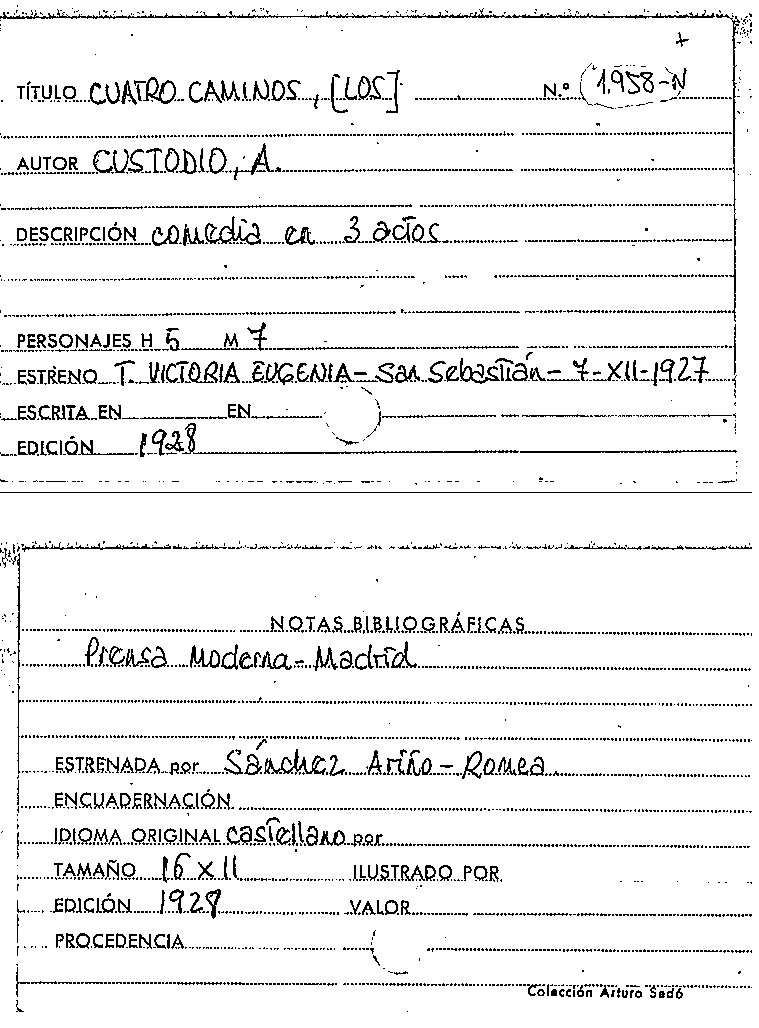 +
TÍTULO CUATRO CAMINOS, [LOS] N.º (1.958-N
AUTOR CUSTODIO, A.
DESCRIPCIÓN comedia en 3 actos
PERSONAJES H 5 M 7
ESTRENO T. VICTORIA EUGENIA - San Sebastián - 7-XII-1927
ESCRITA EN EN
EDICIÓN 1928
NOTAS BIBLIOGRÁFICAS
Prensa Moderna - Madrid
ESTRENADA por Sánchez Ariño - Romea
ENCUADERNACIÓN
IDIOMA ORIGINAL castellano por
TAMAÑO 16 x 11 ILUSTRADO POR
EDICIÓN 1928 VALOR
PROCEDENCIA
Colección Arturo Sedó